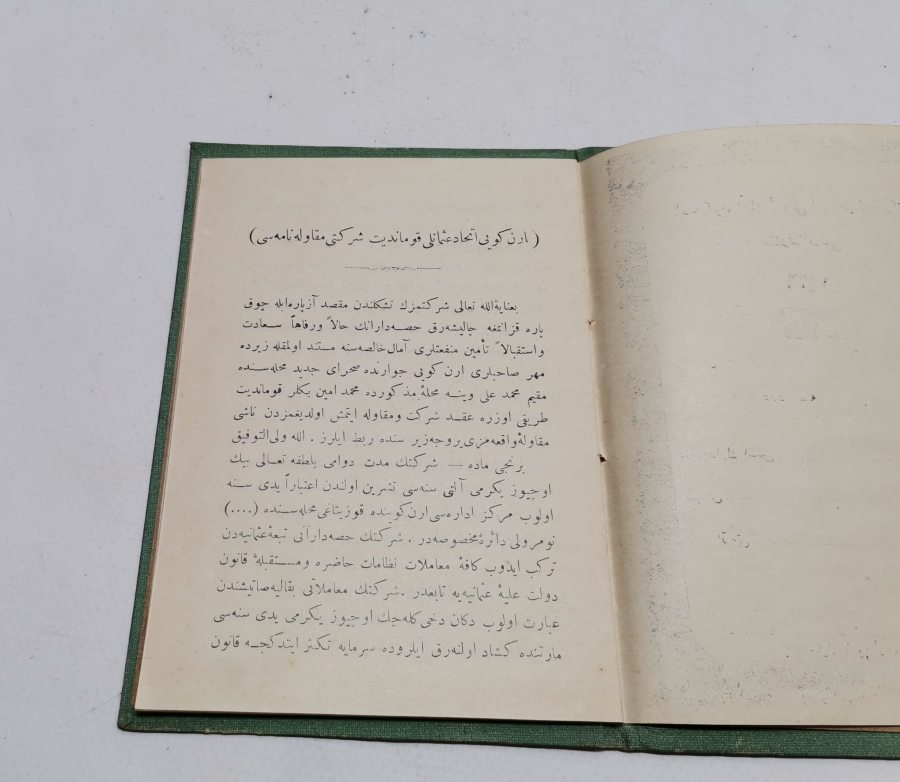 ( ارن کویی اتحاد عثمانلی قوماندیت شرکتی مقاوله نامه سی )
بعنایةالله تعالی شرکتمزك تشکلندن مقصد آز پاره ایله چوق
پاره قزانمغه چالیشه رق حصه دارانك حالاً ورفاهاً سعادت
واستقبالاً تأمین منفعتلری آمال خالصه سنه مستند اولمقله زیرده
مهر صاحبلری ارن کویی جوارنده صحرای جدید محله سنده
مقیم محمد علی وینه محلهٔ مذکورده محمد امین بکلر قوماندیت
طریقی اوزره عقد شرکت ومقاوله ایتمش اولدیغمزدن ناشی
مقاولهٔ واقعه مزی بروجه زیر سنده ربط ایلرز . الله ولی التوفیق
برنجی ماده — شرکتك مدت دوامی بلطفه تعالی بیك
اوچیوز یکرمی آلتی سنه سی تشرین اولندن اعتباراً یدی سنه
اولوب مرکز اداره سی ارن کوینده قوزیتاغی محله سنده (....)
نومرولی دائرهٔ مخصوصه در . شرکتك حصه دارانی تبعهٔ عثمانیه دن
ترکب ایدوب کافهٔ معاملات نظامات حاضره ومستقبلهٔ قانون
دولت علیهٔ عثمانیه یه تابعدر . شرکتك معاملاتی بقالیه صاتیشندن
عبارت اولوب دکان دخی کله جك اوچیوز یکرمی یدی سنه سی
مارتنده کشاد اولنه رق ایلروده سرمایه تکثر ایتدکجه قانون